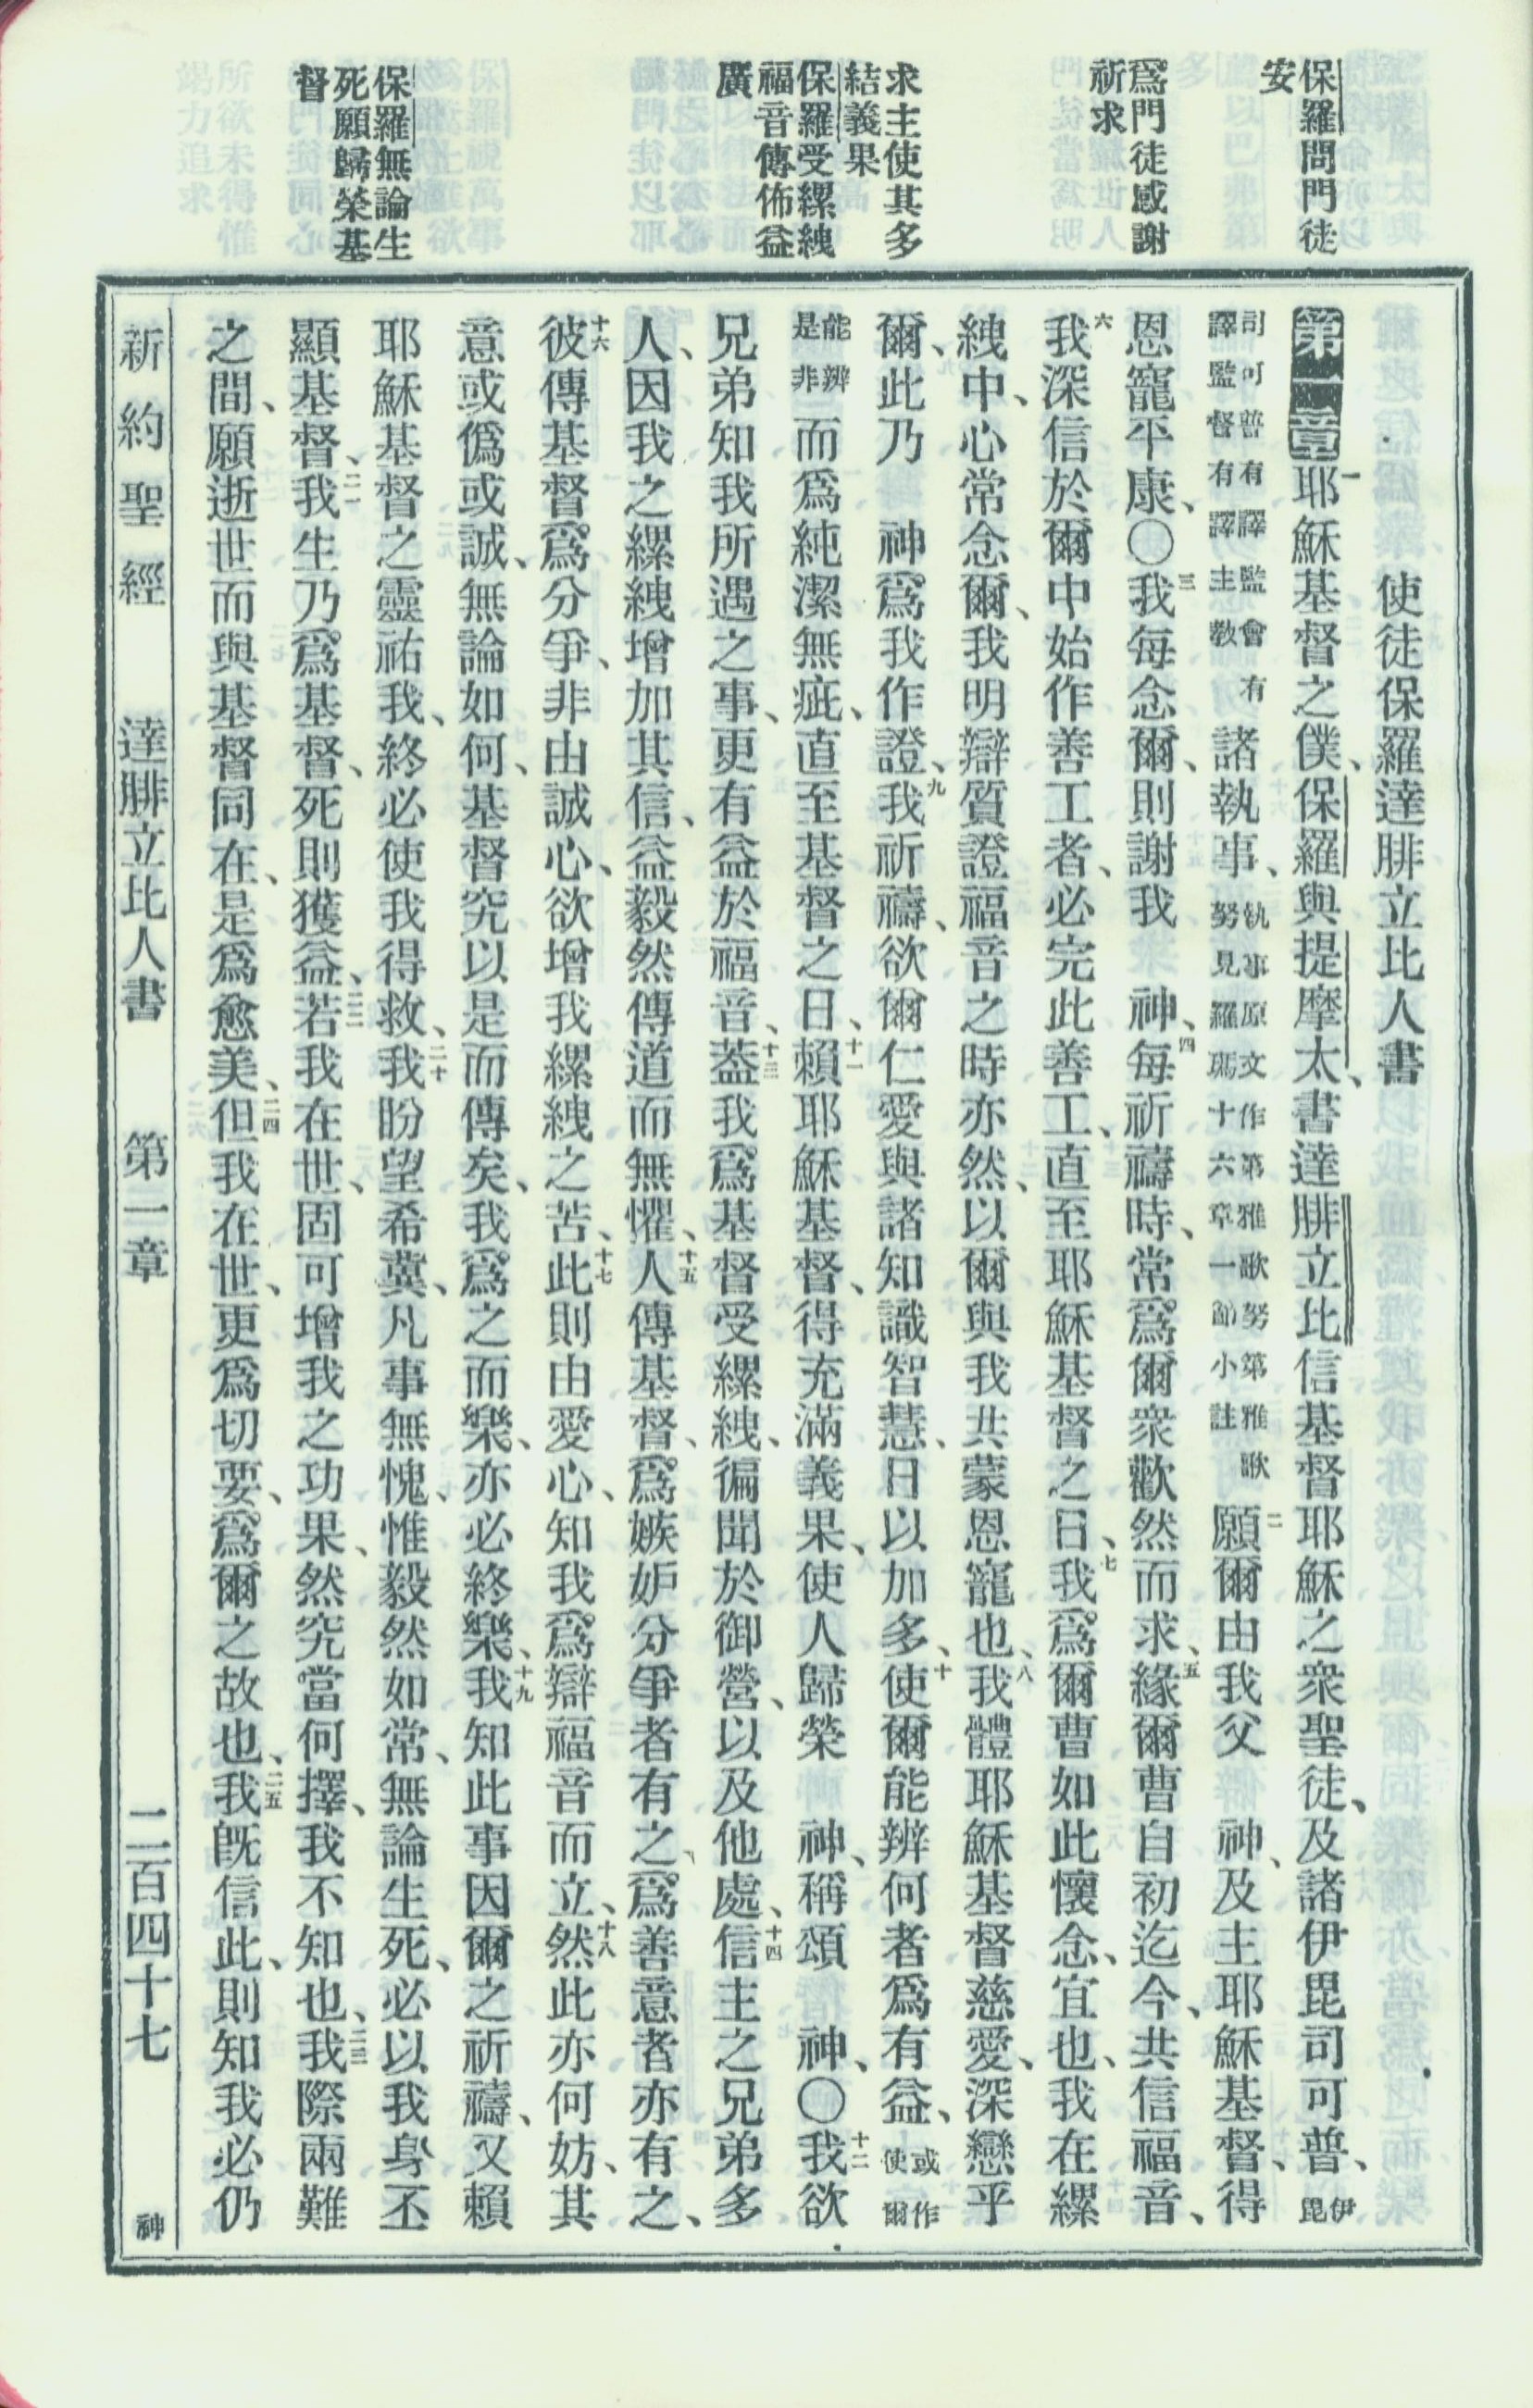 保羅問門徒
安
爲門徒感謝
祈求
求主使其多
結義果
保羅受縲絏
福音傳佈益
廣
保羅無論生
死願歸榮基
督
使徒保羅達腓立比人書
第一章一耶穌基督之僕、保羅與提摩太、書達腓立比信基督耶穌之衆聖徒、及諸伊毘司可普、伊毘
司可普有譯監會有譯監督有譯主教諸執事、執事原文作第雅歌努第雅歌努見羅瑪十六章一節小註二願爾由我父 神、及主耶穌基督、得
恩寵平康、〇三我每念爾、則謝我 神、四每祈禱時、常爲爾衆歡然而求、五緣爾曹自初迄今、共信福音、
六我深信於爾中始作善工者、必完此善工、直至耶穌基督之日、七我爲爾曹如此懷念、宜也、我在縲
絏中、心常念爾、我明辯質證福音之時亦然、以爾與我共蒙恩寵也、八我體耶穌基督慈愛、深戀乎
爾、此乃 神爲我作證、九我祈禱、欲爾仁愛與諸知識智慧、日以加多、十使爾能辨何者爲有益、或作使爾
能辨是非而爲純潔無疵、直至基督之日、十一賴耶穌基督、得充滿義果、使人歸榮 神、稱頌 神、〇十二我欲
兄弟知我所遇之事、更有益於福音、十三蓋我爲基督受縲絏、徧聞於御營、以及他處、十四信主之兄弟多
人、因我之縲絏增加其信、益毅然傳道而無懼、十五人傳基督、爲嫉妒分爭者有之、爲善意者亦有之、
十六彼傳基督、爲分爭、非由誠心、欲增我縲絏之苦、十七此則由愛心、知我爲辯福音而立、十八然此亦何妨、其
意或僞或誠、無論如何、基督究以是而傳矣、我爲之而樂、亦必終樂、十九我知此事因爾之祈禱、又賴
耶穌基督之靈祐我、終必使我得救、二十我盼望希冀、凡事無愧、惟毅然如常、無論生死、必以我身丕
顯基督、二一我生乃爲基督、死則獲益、二二若我在世、固可增我之功果、然究當何擇、我不知也、二三我際兩難
之間、願逝世而與基督同在、是爲愈美、二四但我在世、更爲切要、爲爾之故也、二五我旣信此、則知我必仍
新約聖經 達腓立比人書 第一章 二百四十七 神